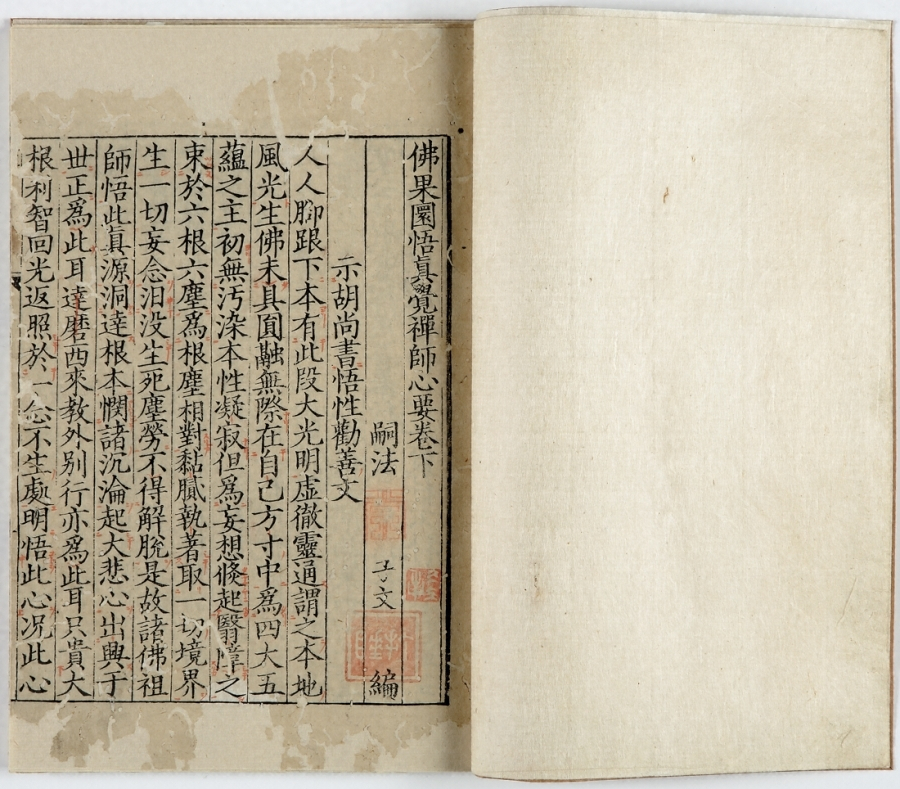 佛果圜悟真覺禪師心要卷下
嗣法 子文 編
示胡尚書悟性勸善文
人人腳跟下本有此段大光明虛徹靈通謂之本地
風光生佛未具圓融無際在自己方寸中為四大五
蘊之主初無汚染本性凝寂但為妄想倐起翳障之
束於六根六塵為根塵相對黏膩執著取一切境界
生一切妄念汩没生死塵勞不得解脫是故諸佛祖
師悟此真源洞達根本憫諸沉淪起大悲心出興于
世正為此耳達磨西來教外别行亦為此耳只貴大
根利智回光返照於一念不生處明悟此心况此心